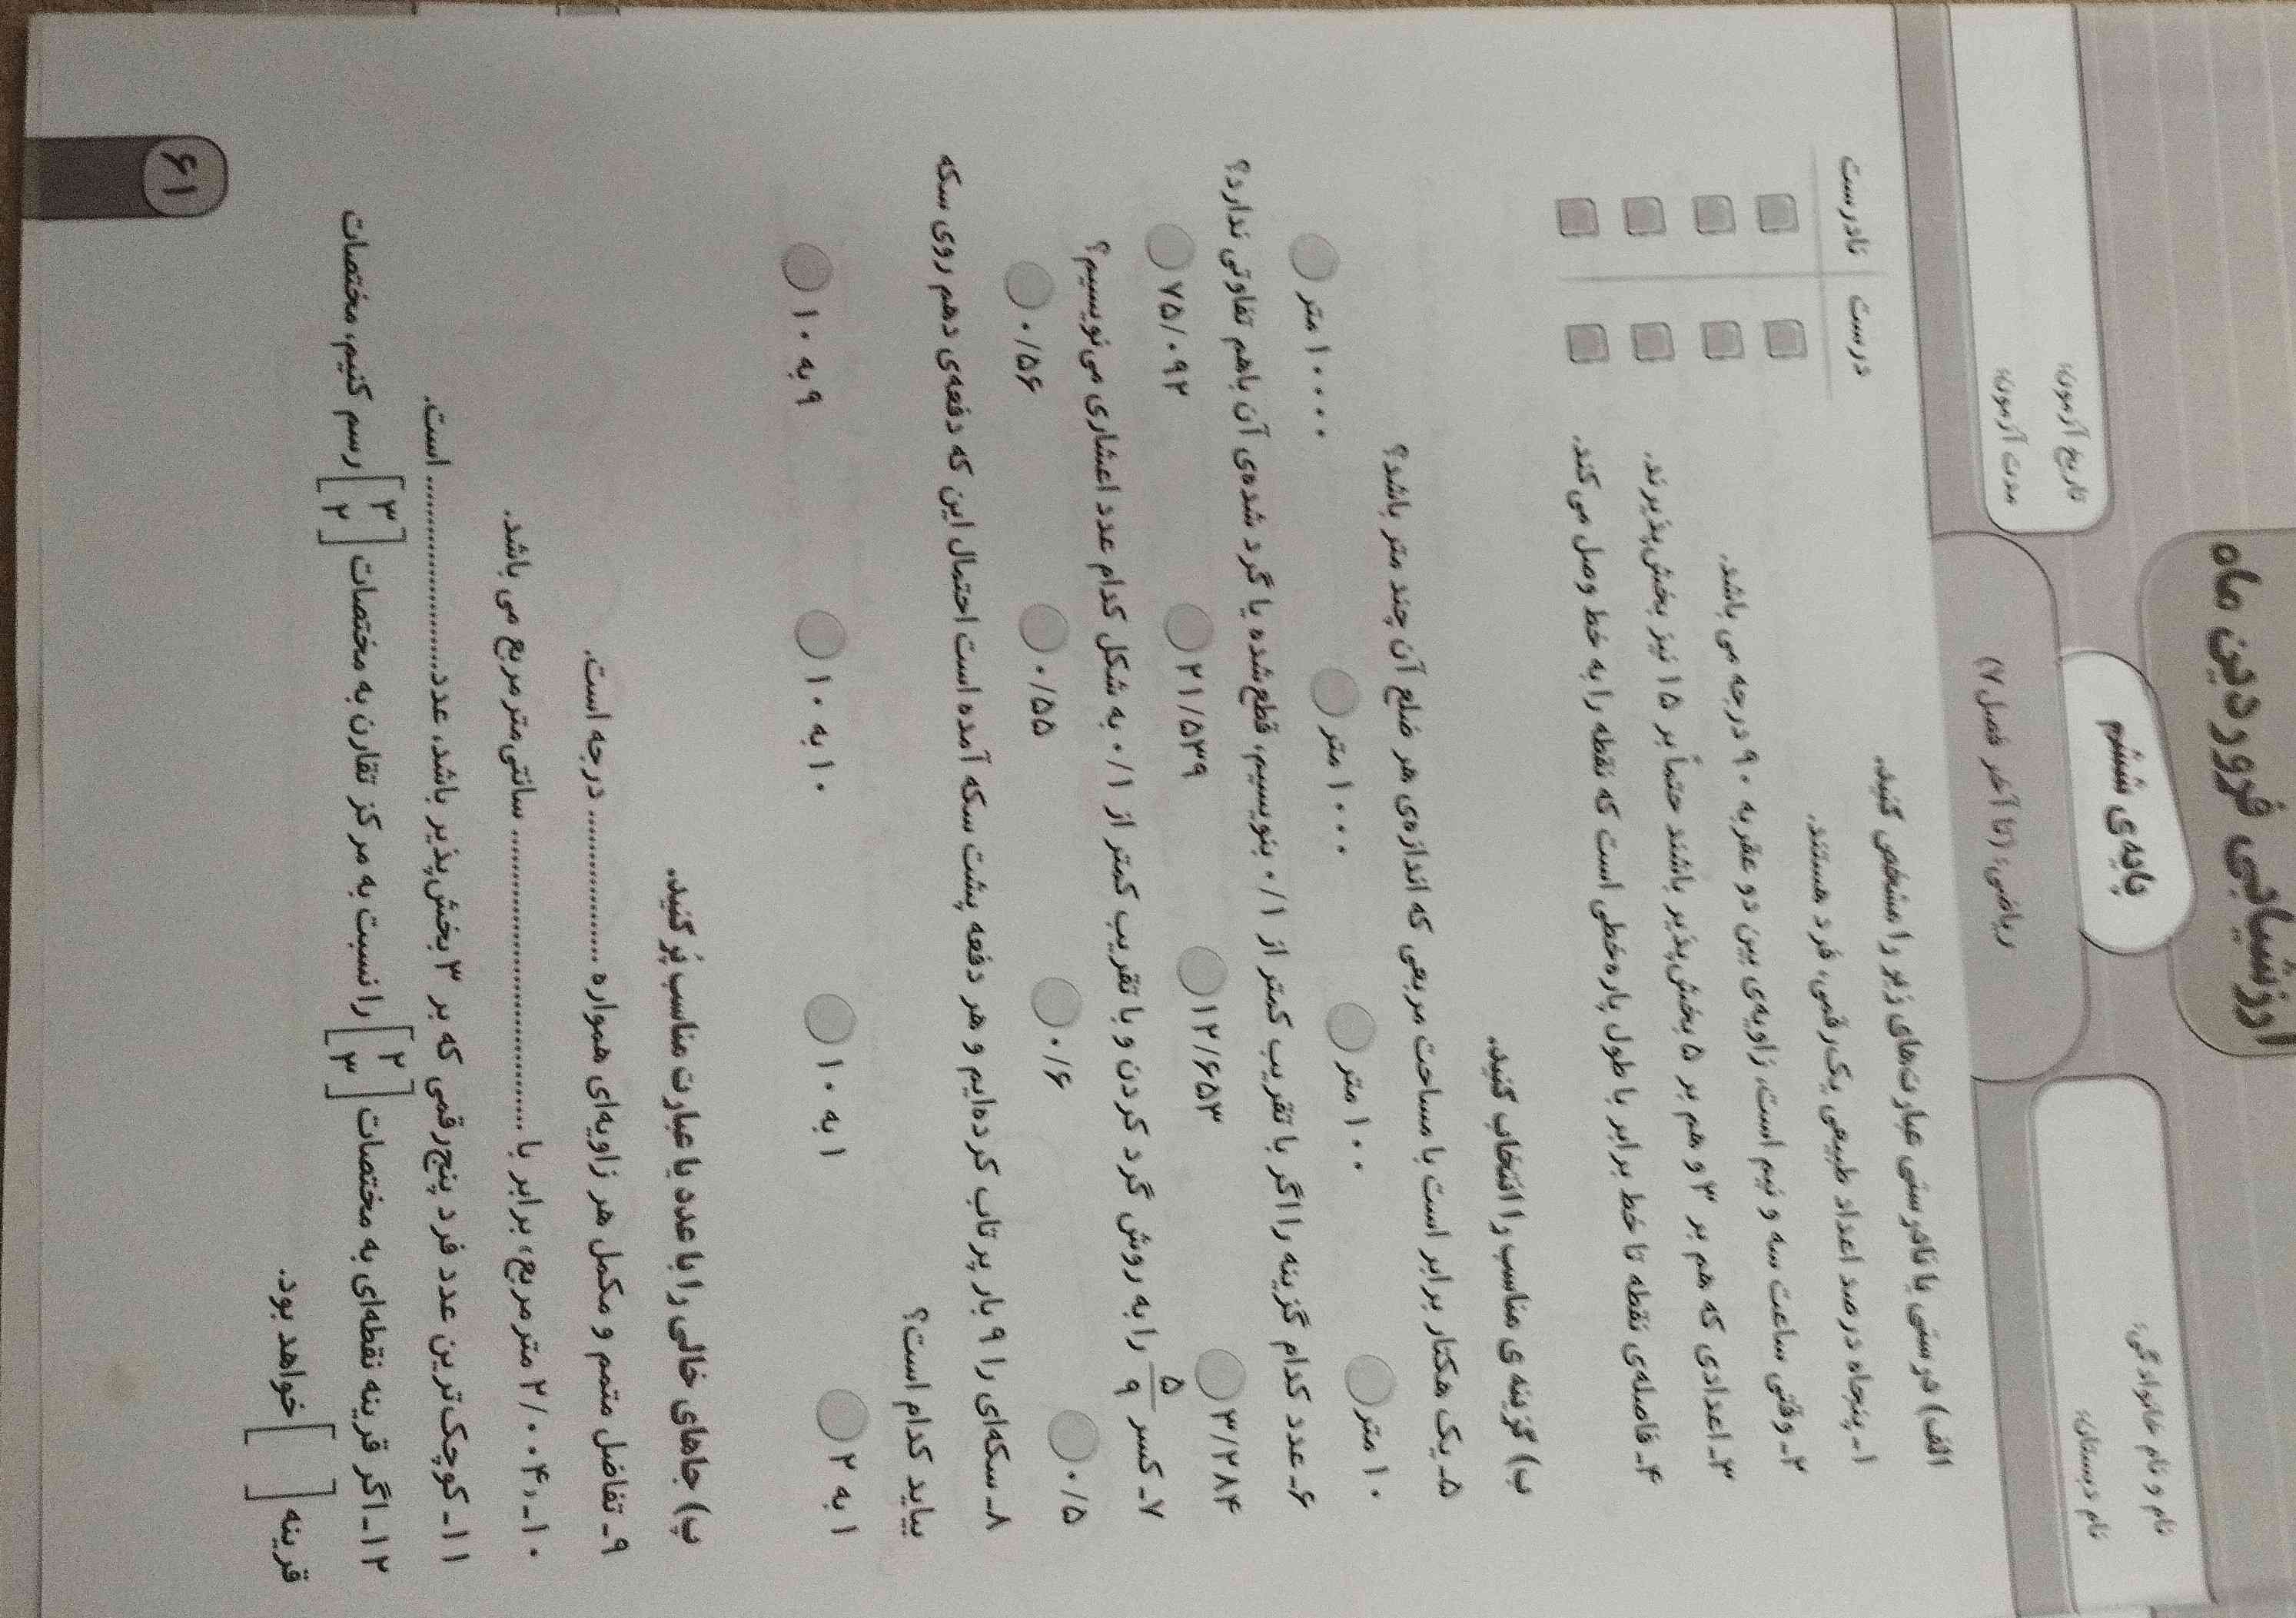 ارزشیابی فروردین ماه
پایه‌ی ششم
نام و نام خانوادگی:
نام دبستان:
تاریخ آزمون:
مدت آزمون:
ریاضی: (تا آخر فصل ۷)
الف) درستی یا نادرستی عبارت‌های زیر را مشخص کنید. درست نادرست
۱- پنجاه درصد اعداد طبیعی یک‌رقمی، فرد هستند.
۲- وقتی ساعت سه و نیم است، زاویه‌ی بین دو عقربه ۹۰ درجه می باشد.
۳- اعدادی که هم بر ۳ و هم بر ۵ بخش‌پذیر باشند حتماً بر ۱۵ نیز بخش‌پذیرند.
۴- فاصله‌ی نقطه تا خط برابر با طول پاره‌خطی است که نقطه را به خط وصل می‌کند.
ب) گزینه ی مناسب را انتخاب کنید.
۵- یک هکتار برابر است با مساحت مربعی که اندازه‌ی هر ضلع آن چند متر باشد؟
۱۰ متر ۱۰۰ متر ۱۰۰۰ متر ۱۰۰۰۰ متر
۶- عدد کدام گزینه را اگر با تقریب کمتر از ۰/۱ بنویسیم، قطع‌شده یا گرد شده‌ی آن باهم تفاوتی ندارد؟
۳/۲۸۴ ۱۲/۶۵۳ ۲۱/۵۳۹ ۷۵/۰۹۲
۷- کسر ۵/۹ را به روش گرد کردن و با تقریب کمتر از ۰/۱ به شکل کدام عدد اعشاری می‌نویسیم؟
۰/۵ ۰/۶ ۰/۵۵ ۰/۵۶
۸- سکه‌ای را ۹ بار پرتاب کرده‌ایم و هر دفعه پشت سکه آمده است احتمال این که دفعه‌ی دهم روی سکه
بیاید کدام است؟
۱ به ۲ ۱ به ۱۰ ۱۰ به ۱۰ ۹ به ۱۰
پ) جاهای خالی را با عدد یا عبارت مناسب پُر کنید.
۹- تفاضل متمم و مکمل هر زاویه‌ای همواره .................. درجه است.
۱۰- ۲/۰۰۴ متر مربع، برابر با .................................... سانتی‌متر مربع می باشد.
۱۱- کوچک‌ترین عدد فرد پنج‌رقمی که بر ۳ بخش‌پذیر باشد، عدد........................ است.
۱۲- اگر قرینه نقطه‌ای به مختصات [۲ ۳] را نسبت به مرکز تقارن به مختصات [۳ ۲] رسم کنیم، مختصات
قرینه [ ] خواهد بود.
۶۱